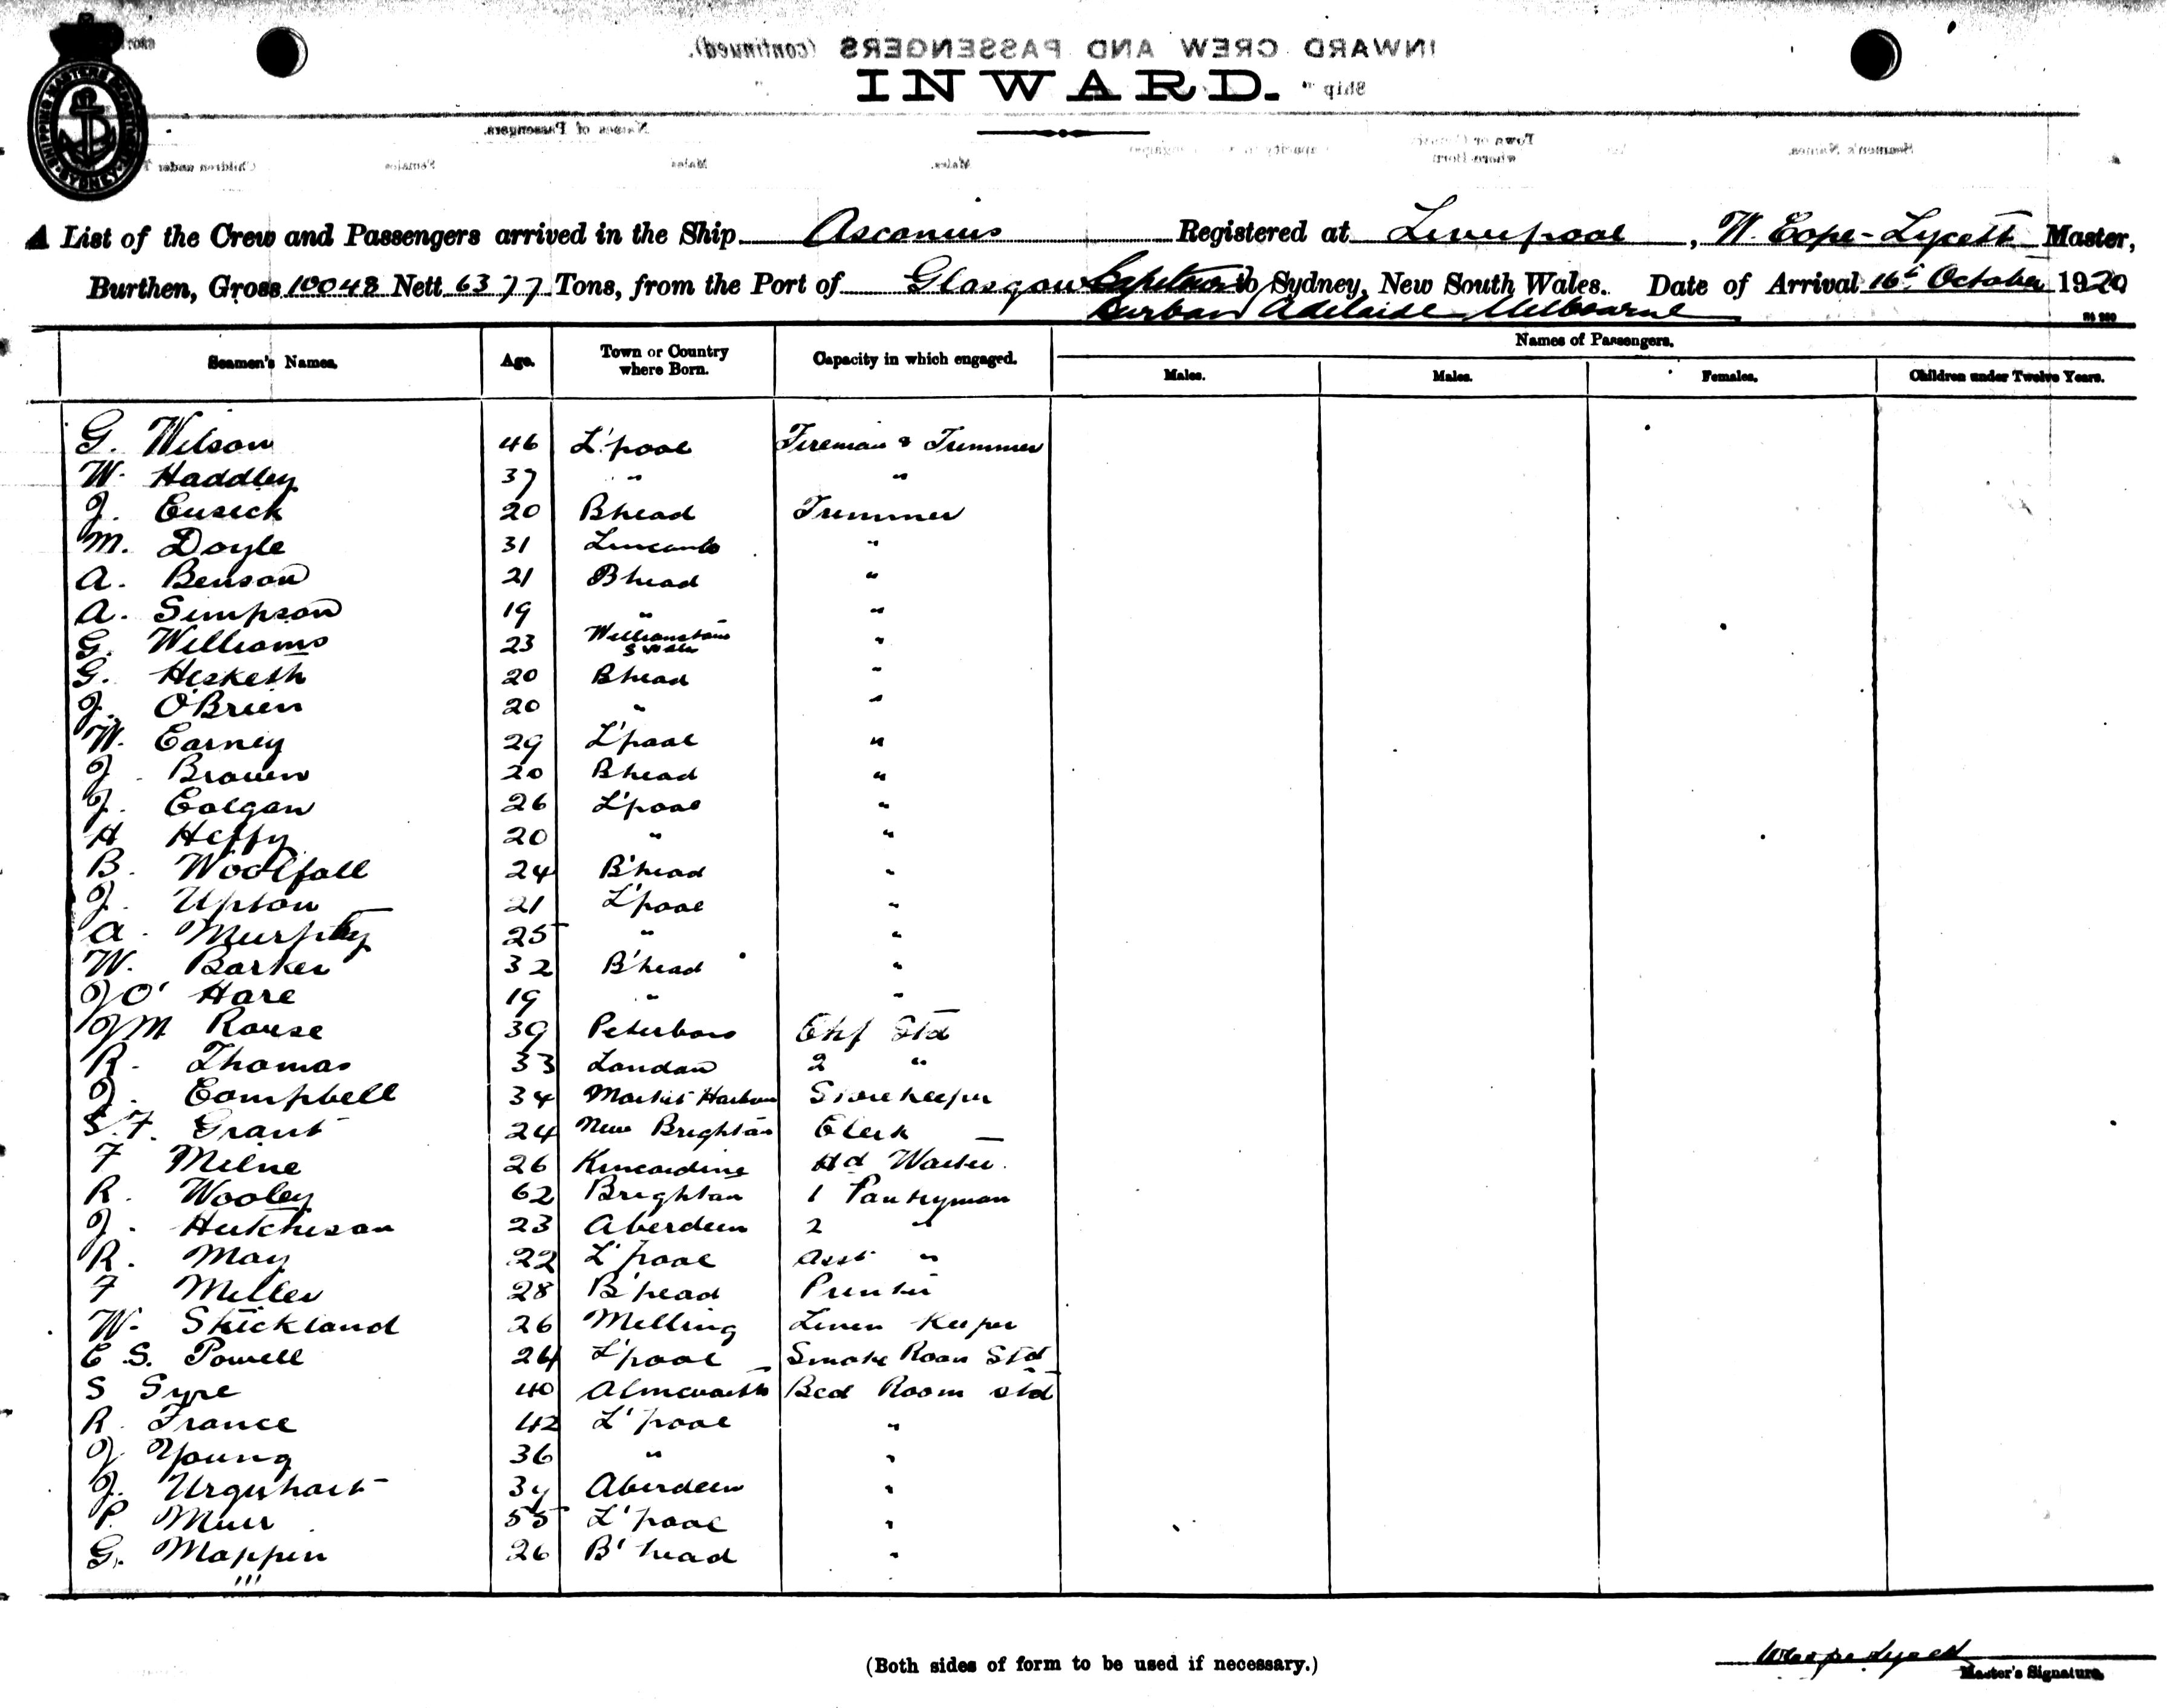 INWARD.
A List of the Crew and Passengers arrived in the Ship Ascanius Registered at Liverpool, W. Cope-Lycett Master,
Burthen, Gross 10048 Nett 6377 Tons, from the Port of Glasgow Capetown to Sydney, New South Wales. Date of Arrival 16th October 1920
Durban Adelaide Melbourne
Seamen's Names. Age. Town or Country where Born. Capacity in which engaged. Names of Passengers.
Males. Males. Females. Children under Twelve Years.
G. Wilson 46 L'pool Fireman & Trimmer
W. Haddley 37 " "
J. Cusick 20 Bhead Trimmer
M. Doyle 31 "
A. Benson 21 Bhead "
A. Simpson 19 " "
G. Williams 23 Williamstown "
G. Hesketh 20 Bhead "
J. O'Brien 20 " "
W. Carney 29 L'pool "
J. Brown 20 Bhead "
J. Colgan 26 L'pool "
H Heffy 20 " "
B. Woolfall 24 B'head "
J. Upton 21 L'pool "
A. Murphy 25 " "
W. Barker 32 B'head "
J O' Hare 19 " "
J M Rouse 39 Peterboro Chf Std
R. Thomas 33 London 2 "
J. Campbell 34 Market Harboro Storekeeper
S. F. Grant 24 New Brighton Clerk
F Milne 26 Kincardine Hd Waiter.
R. Wooley 62 Brighton 1 Pantryman
J. Hutchison 23 Aberdeen 2 "
R. May 22 L'pool Asst "
F Miller 28 B'head Printer
W. Strickland 26 Melling Linen Keeper
C S. Powell 24 L'pool Smoke Room Std
S Syre 40 Bed Room Std
R. France 42 L'pool "
J Young 36 " "
J. Urquhart 34 Aberdeen "
P. Muir 55 L'pool "
G. Mappin 26 B'head "
(Both sides of form to be used if necessary.)
W Cope Lycett
Master's Signature